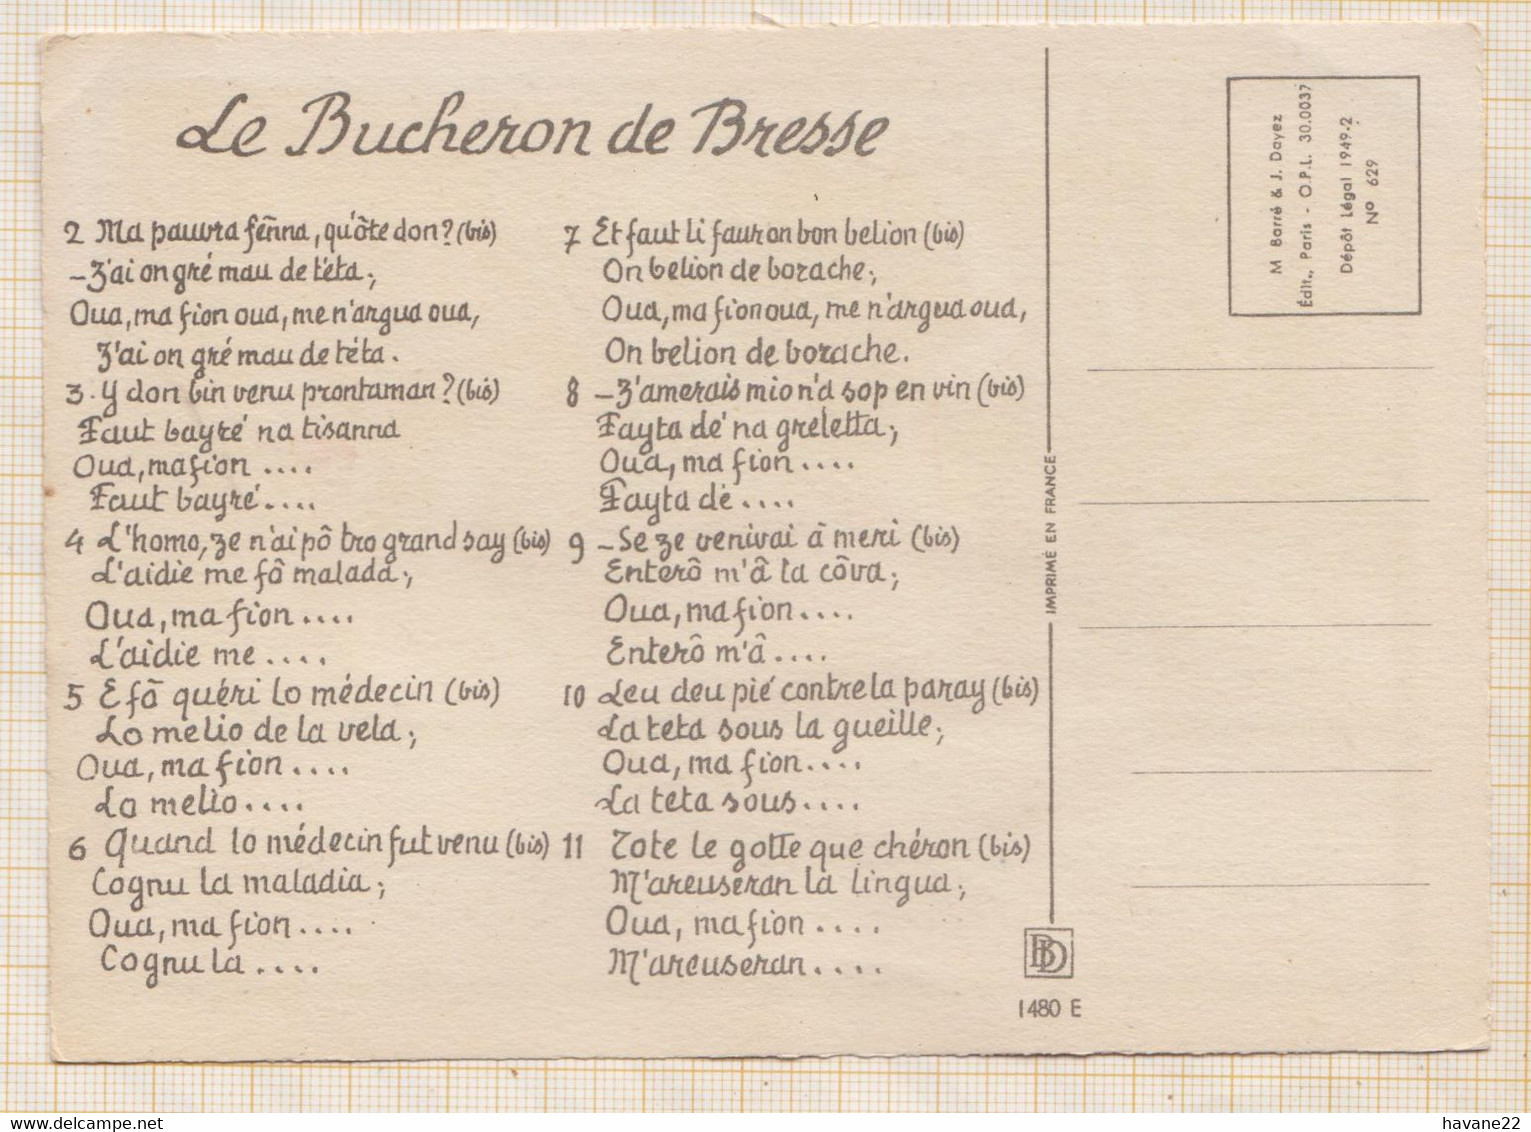 Le Bucheron de Bresse
2 Ma pauvra fēnna, qu'ôte don? (bis)
- Z'ai on gré mau de téta;
Oua, ma fion oua, me n'argua oua,
Z'ai on gré mau de téta.
3. Y don bin venu prontaman? (bis)
Faut bayré na tisanna
Oua, ma fion ....
Faut bayré ....
4 L'homo, ze n'ai pô tro grand say (bis)
L'aidie me fô malada;
Oua, ma fion ....
L'aidie me ....
5 E fô quéri lo médecin (bis)
Lo melio de la vela;
Oua, ma fion ....
Lo melio ....
6 Quand lo médecin fut venu (bis)
Cognu la maladia;
Oua, ma fion ....
Cognu la ....
7 Et faut li faur on bon belion (bis)
On belion de borache;
Oua, ma fion oua, me n'argua oua,
On belion de borache.
8 - Z'amerais mio n'a sop en vin (bis)
Fayta dé na greletta;
Oua, ma fion ....
Fayta dé ....
9 - Se ze venivai à meri (bis)
Enterô m'â la côva;
Oua, ma fion ....
Enterô m'â ....
10 Leu deu pié contre la paray (bis)
La teta sous la gueille;
Oua, ma fion ....
La teta sous ....
11 Tote le gotte que chéron (bis)
M'areuseran la lingua;
Oua, ma fion ....
M'areuseran ....
IMPRIMÉ EN FRANCE
BD
1480 E
M Barré & J. Dayez
Édit., Paris - O.P.L. 30.0037
Dépôt Légal 1949-2
No 629
havane22